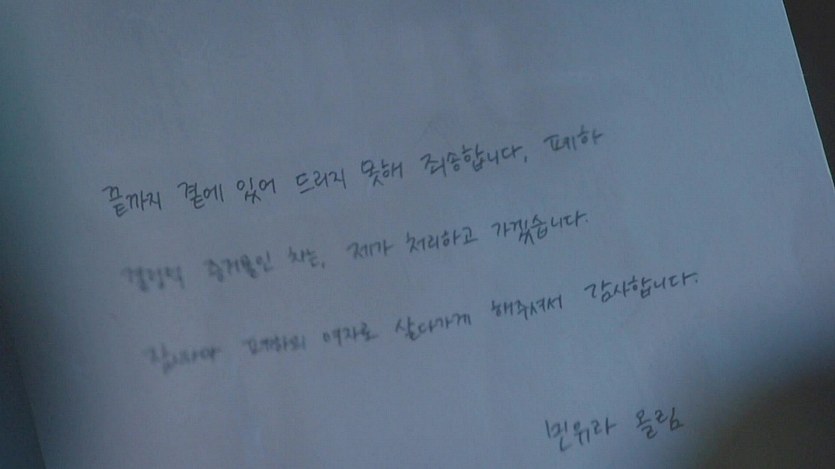 끝까지 곁에 있어 드리지 못해 죄송합니다, 폐하
결정적 증거물인 차는, 제가 처리하고 가겠습니다.
잠시나마 폐하의 여자로 살다가게 해주셔서 감사합니다.
민유라 올림